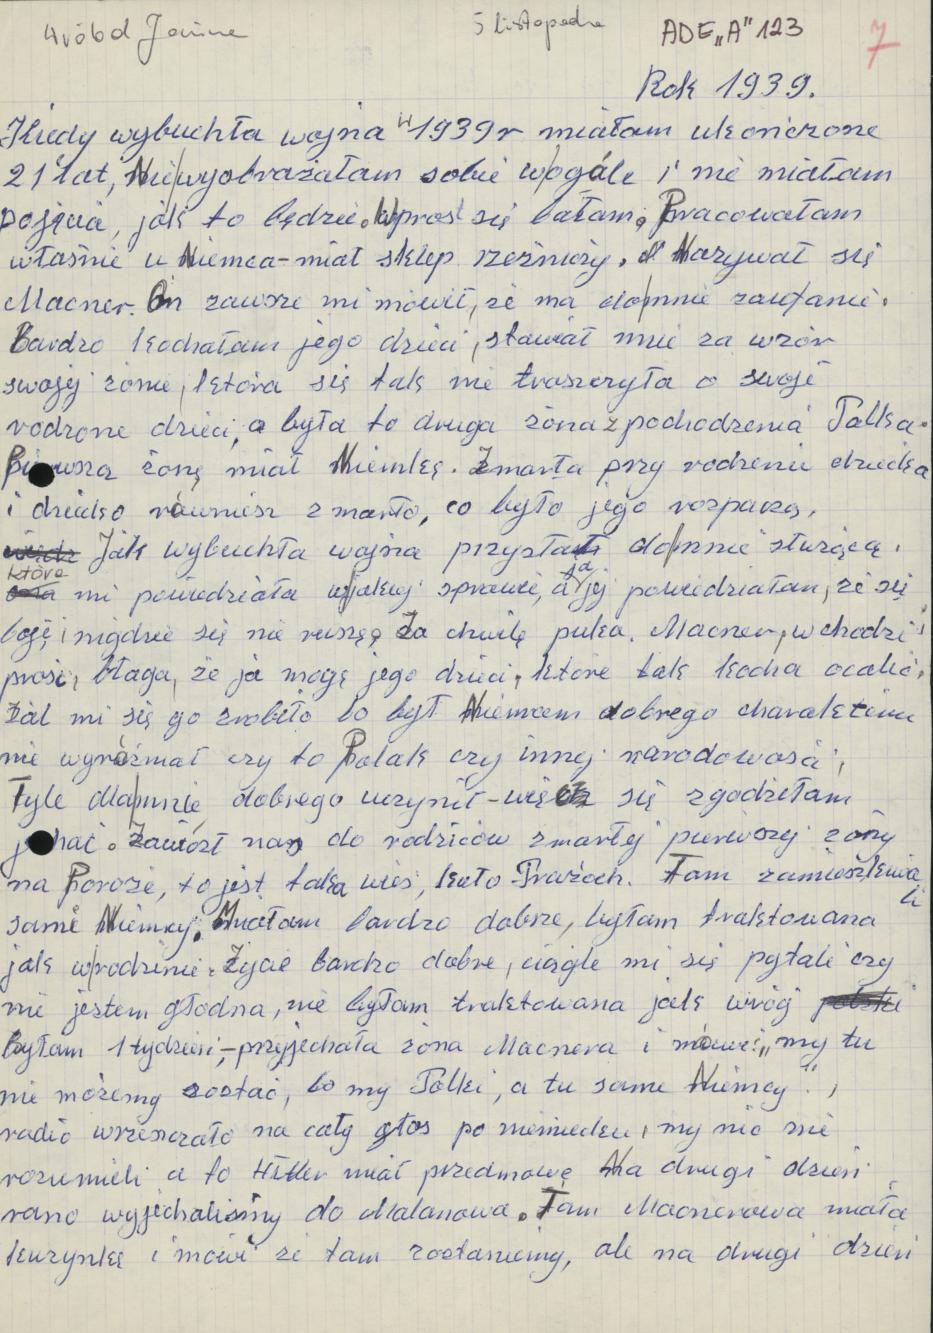 Wróbel Janina 5 listopada ADE „A" 123 7
Rok 1939.
Kiedy wybuchła wojna w 1939r miałam ukończone
21 lat, Nie wyobrażałam sobie wogóle i nie miałam
pojęcia, jak to będzie. Wprost się bałam. Pracowałam
właśnie u Niemca - miał sklep rzeźniczy. Nazywał się
Macner. On zawsze mi mówił, że ma do mnie zaufanie.
Bardzo kochałam jego dzieci, stawiał mnie za wzór
swojej żonie, która się tak nie troszczyła o swoje
rodzone dzieci, a była to druga żona z pochodzenia Polka.
Pierwszą żonę miał Niemkę. Zmarła przy rodzeniu dziecka
i dziecko również zmarło, co było jego rozpaczą.
Jak wybuchła wojna przysłał do mnie służącą.
która mi powiedziała w jakiej sprawie, a ja jej powiedziałam, że się
boję i nigdzie się nie ruszę. Za chwilę puka. Macner, wchodzi i
prosi, błaga, że ja mogę jego dzieci, które tak kocha ocalić.
Żal mi się go zrobiło bo był Niemcem dobrego charakteru
nie wyróżniał czy to Polak czy innej narodowości,
Tyle dla mnie dobrego uczynił - więc się zgodziłam
jechać. Zawiózł nas do rodziców zmarłej pierwszej żony
na Poroże, to jest taka wieś, koło Prażuch. Tam zamieszkiwali
sami Niemcy. Miałam bardzo dobrze, byłam traktowana
jak w rodzinie. Życie bardzo dobre, ciągle mi się pytali czy
nie jestem głodna, nie byłam traktowana jak wróg
byłam 1 tydzień, - przyjechała żona Macnera i mówi: „my tu
nie możemy zostać, bo my Polki, a tu same Niemcy",
radio wrzeszczało na cały głos po niemiecku, my nic nie
rozumieli a to Hitler miał przedmowę Na drugi dzień
rano wyjechaliśmy do Malanowa. Tam Macnerowa miała
kuzynkę i mówi że tam zostaniemy, ale na drugi dzień